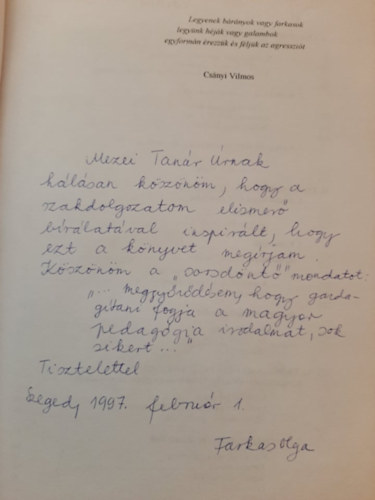 Legyenek bárányok vagy farkasok
legyünk héják vagy galambok
egyformán érezzük és féljük az agressziót
Csányi Vilmos
Mezei Tanár Úrnak
hálásan köszönöm, hogy a
szakdolgozatom elismerő
bírálatával inspirált, hogy
ezt a könyvet megírjam.
Köszönöm a „sorsdöntő" mondatot:
„... meggyőződésem, hogy gazda-
gítani fogja a magyar
pedagógia irodalmát, sok
sikert ..."
Tisztelettel
Szeged, 1997. február 1.
Farkas Olga